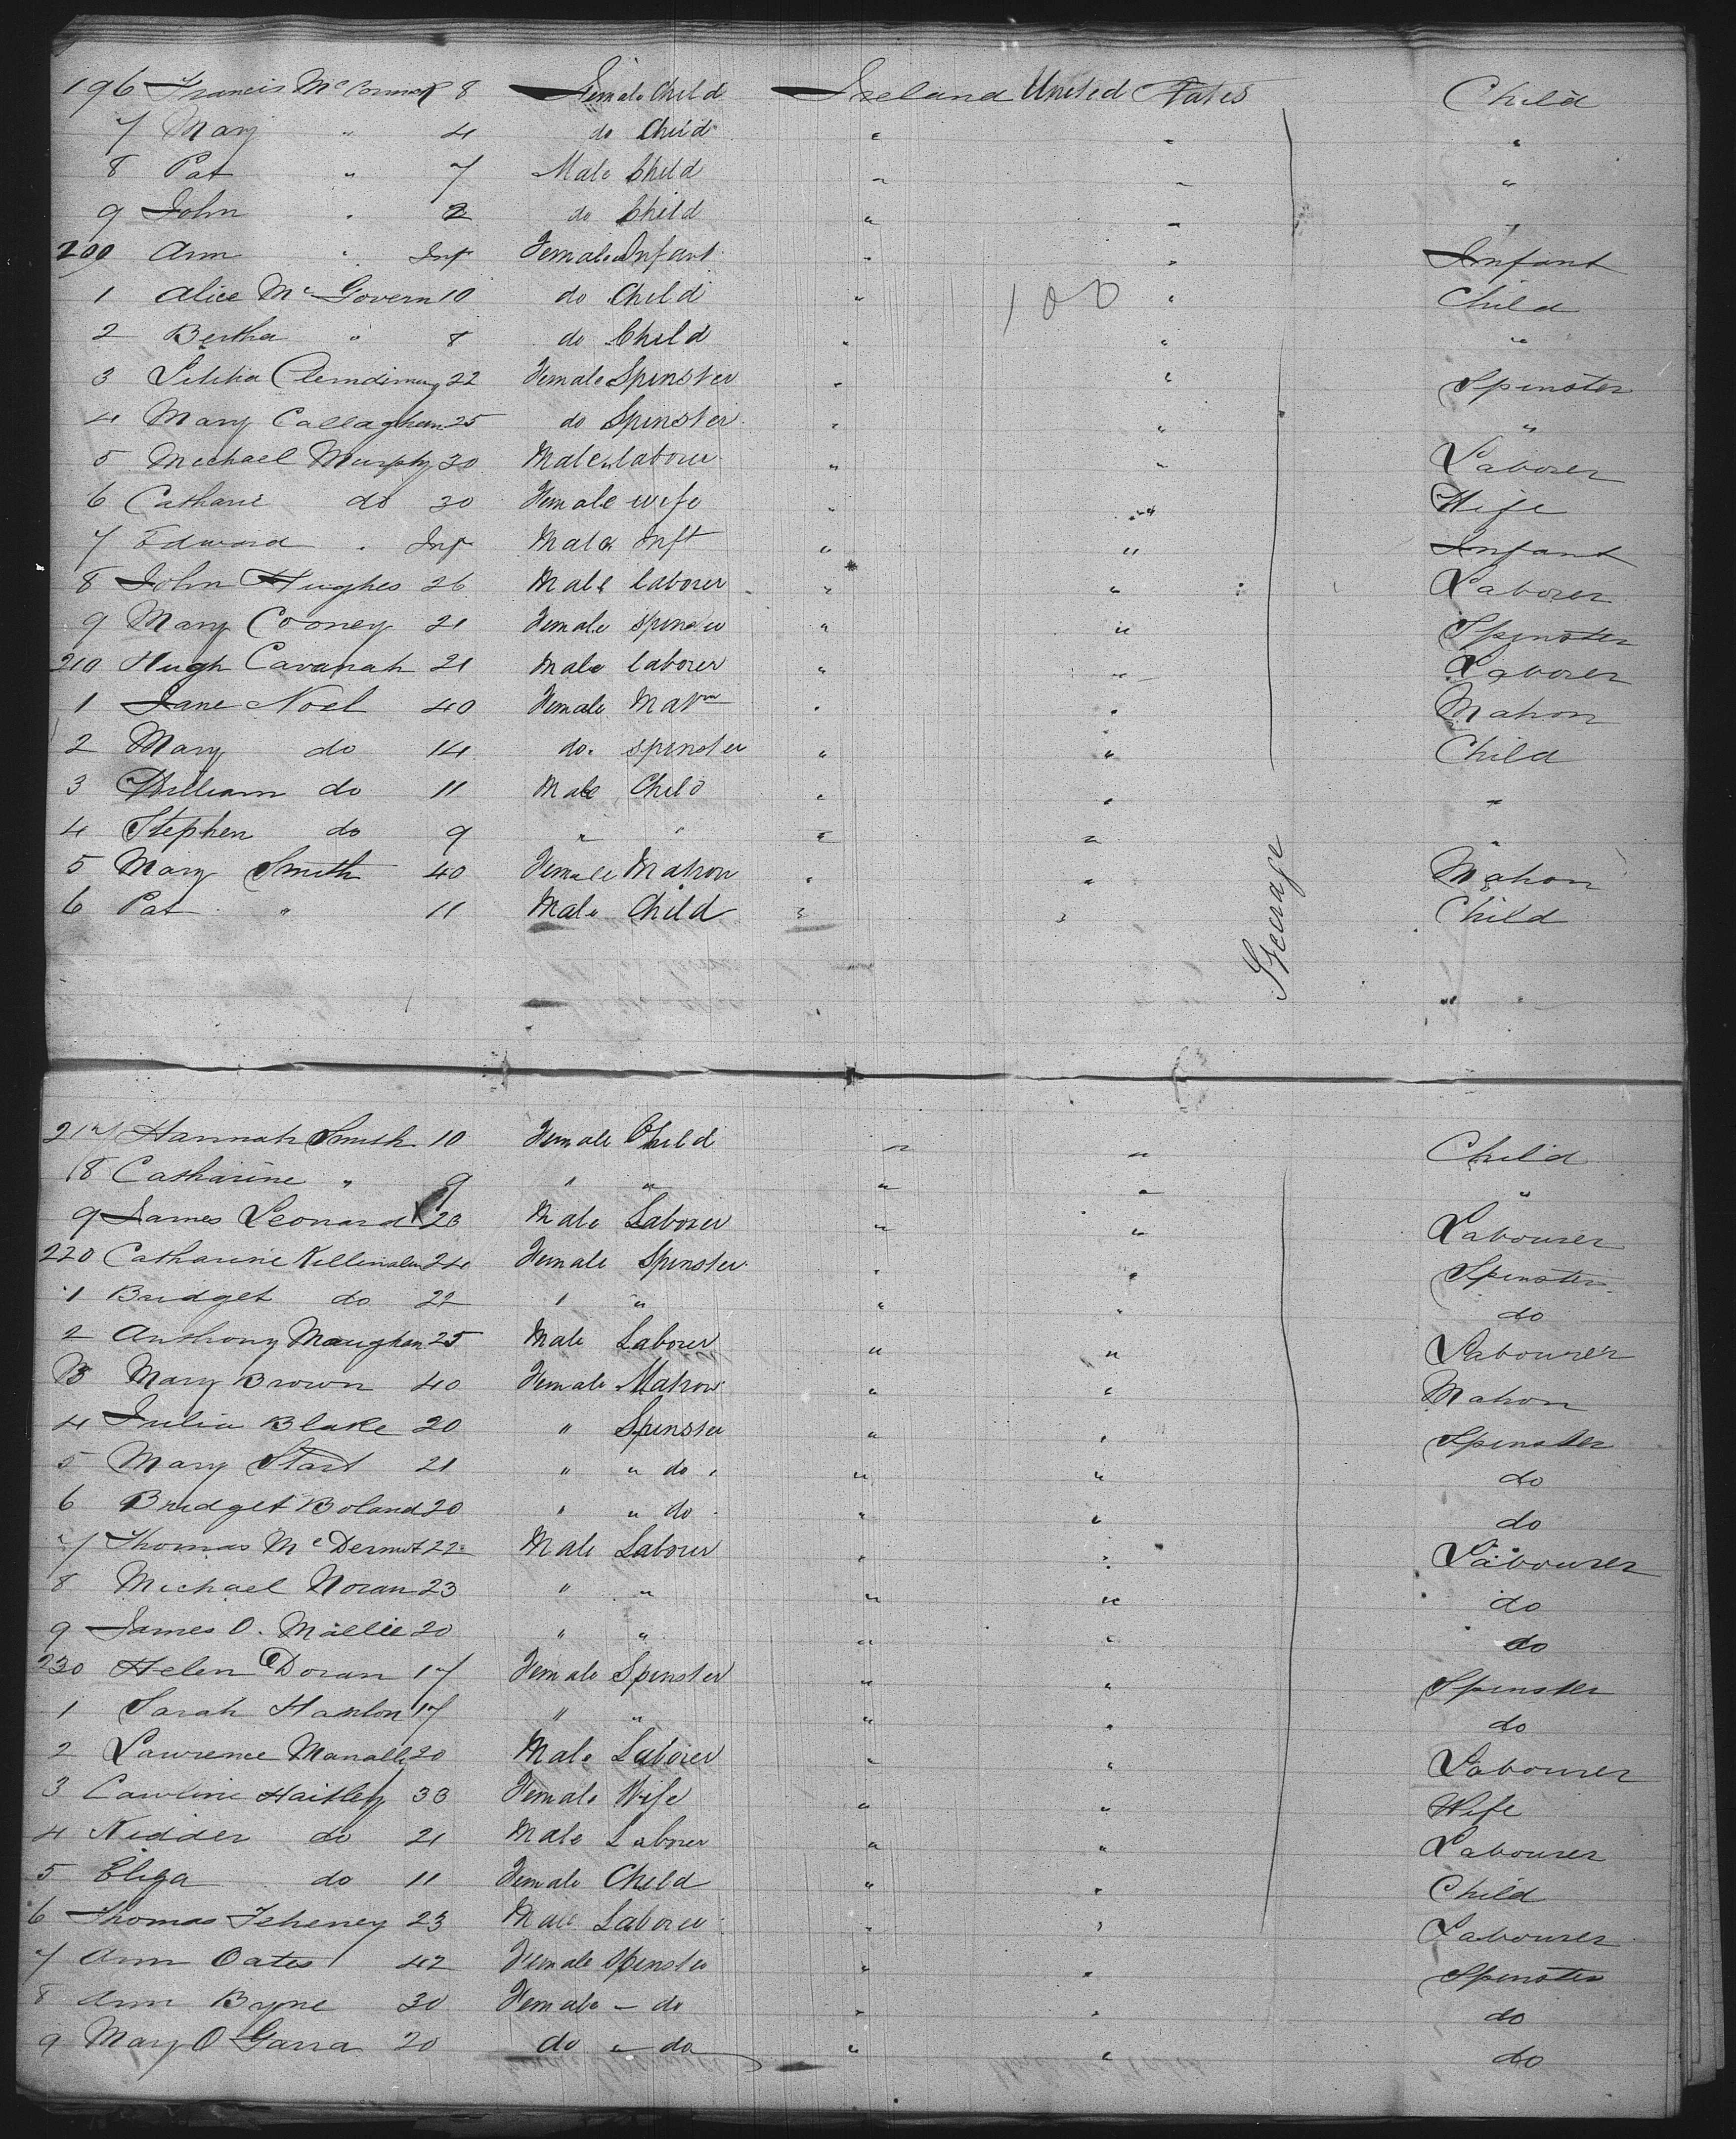 196 Francis McCormack 8 Female Child Ireland United States Child
7 Mary " 4 do Child " " "
8 Pat " 7 Male Child " " "
9 John " 2 do Child " " "
200 Ann " Inf Female Infant " " Infant
1 Alice McGovern 10 do Child " 100 " Child
2 Bertha " 8 do Child " " "
3 Letitia 22 Female Spinster " " Spinster
4 Mary Callaghan 25 do Spinster " " "
5 Michael Murphy 30 Male laborer " " Laborer
6 Catharine do 30 Female wife " " Wife
7 Edward " Inf Male Inft " " Infant
8 John Hughes 26 Male laborer " " Laborer
9 Mary Cooney 21 Female spinster " " Spinster
210 Hugh Cavanah 21 Male laborer " " Laborer
1 Jane Noel 40 Female Matrn " " Matron
2 Mary do 14 do spinster " " Child
3 William do 11 Male Child " " "
4 Stephen do 9 " " " " "
5 Mary Smith 40 Female Matron " " Matron
6 Pat " 11 Male Child " " Child
Steerage
217 Hannah Smith 10 Female Child " " Child
18 Catharine " 9 " " " " "
9 James Leonard 23 Male Laborer " " Labourer
220 Catharine 24 Female Spinster " " Spinster
1 Bridget do 22 " " " " do
2 Anthony Maughan 25 Male Laborer " " Labourer
3 Mary Brown 40 Female Matron " " Matron
4 Julia Blake 20 " Spinster " " Spinster
5 Mary Start 21 " " do " " do
6 Bridget Boland 20 " " do " " do
7 Thomas McDermot 22 Male Laborer " " Labourer
8 Michael Horan 23 " " " " do
9 James O. Mallie 20 " " " " do
230 Helen Doran 17 Female Spinster " " Spinster
1 Sarah Hanlon 17 " " " " do
2 Lawrence 20 Male Laborer " " Labourer
3 Caroline Haitley 33 Female Wife " " Wife
4 Kidder do 21 Male Laborer " " Labourer
5 Eliza do 11 Female Child " " Child
6 Thomas Feheney 23 Male Laborer " " Labourer
7 Ann Oates 42 Female Spinster " " Spinster
8 Ann Byrne 30 Female - do " " do
9 Mary O Garra 20 do " do " " do